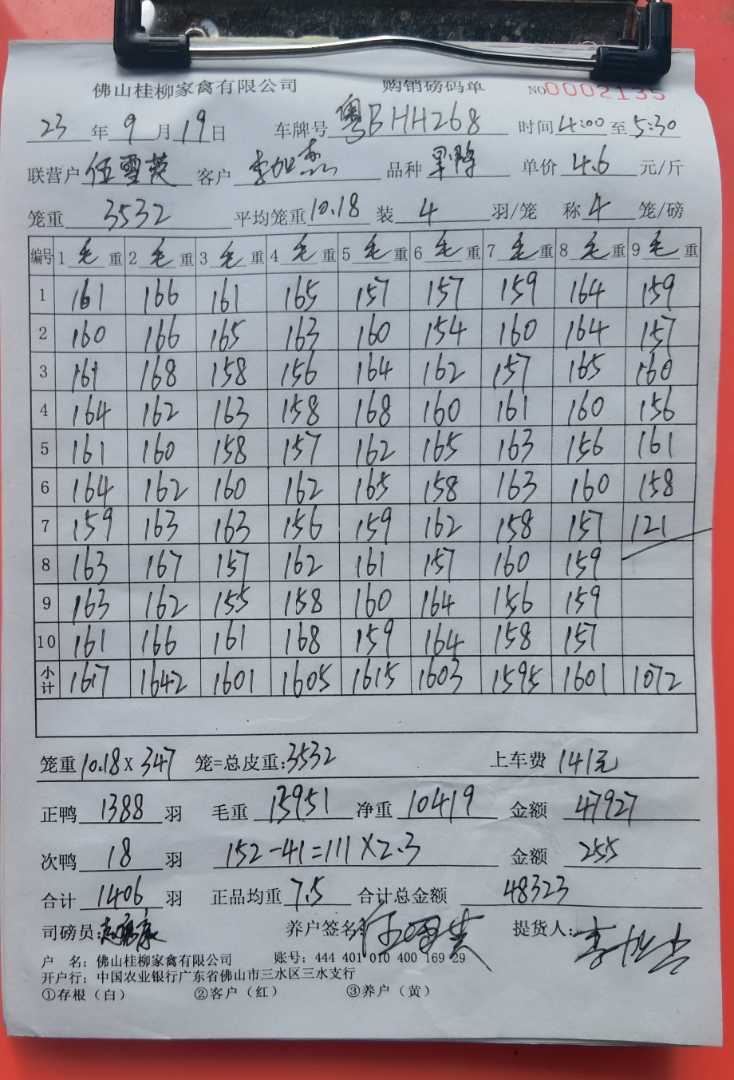 佛山桂柳家禽有限公司 购销磅码单 NO0002135
23年9月19日 车牌号 粤BHH268 时间4:00至5:30
联营户 伍雪英 客户 品种 单价 4.6 元/斤
笼重 3532 平均笼重 10.18 装 4 羽/笼 称 4 笼/磅
编号 1毛重 2毛重 3毛重 4毛重 5毛重 6毛重 7毛重 8毛重 9毛重
1 161 166 161 165 157 157 159 164 159
2 160 166 165 163 160 154 160 164 157
3 161 168 158 156 164 162 157 165 160
4 164 162 163 158 168 160 161 160 156
5 161 160 158 157 162 165 163 156 161
6 164 162 160 162 165 158 163 160 158
7 159 163 163 156 159 162 158 157 121
8 163 167 157 162 161 157 160 159
9 163 162 155 158 160 164 156 159
10 161 166 161 168 159 164 158 157
小计 1617 1642 1601 1605 1615 1603 1595 1601 1072
笼重 10.18 X 347 笼=总皮重:3532 上车费 141元
正鸭 1388 羽 毛重 13951 净重 10419 金额 47927
次鸭 18 羽 152-41=111X2.3 金额 255
合计 1406 羽 正品均重 7.5 合计总金额 48323
司磅员: 养户签名: 伍雪英 提货人:
户 名: 佛山桂柳家禽有限公司 账号: 444 401 010 400 169 29
开户行: 中国农业银行广东省佛山市三水区三水支行
①存根（白） ②客户（红） ③养户（黄）